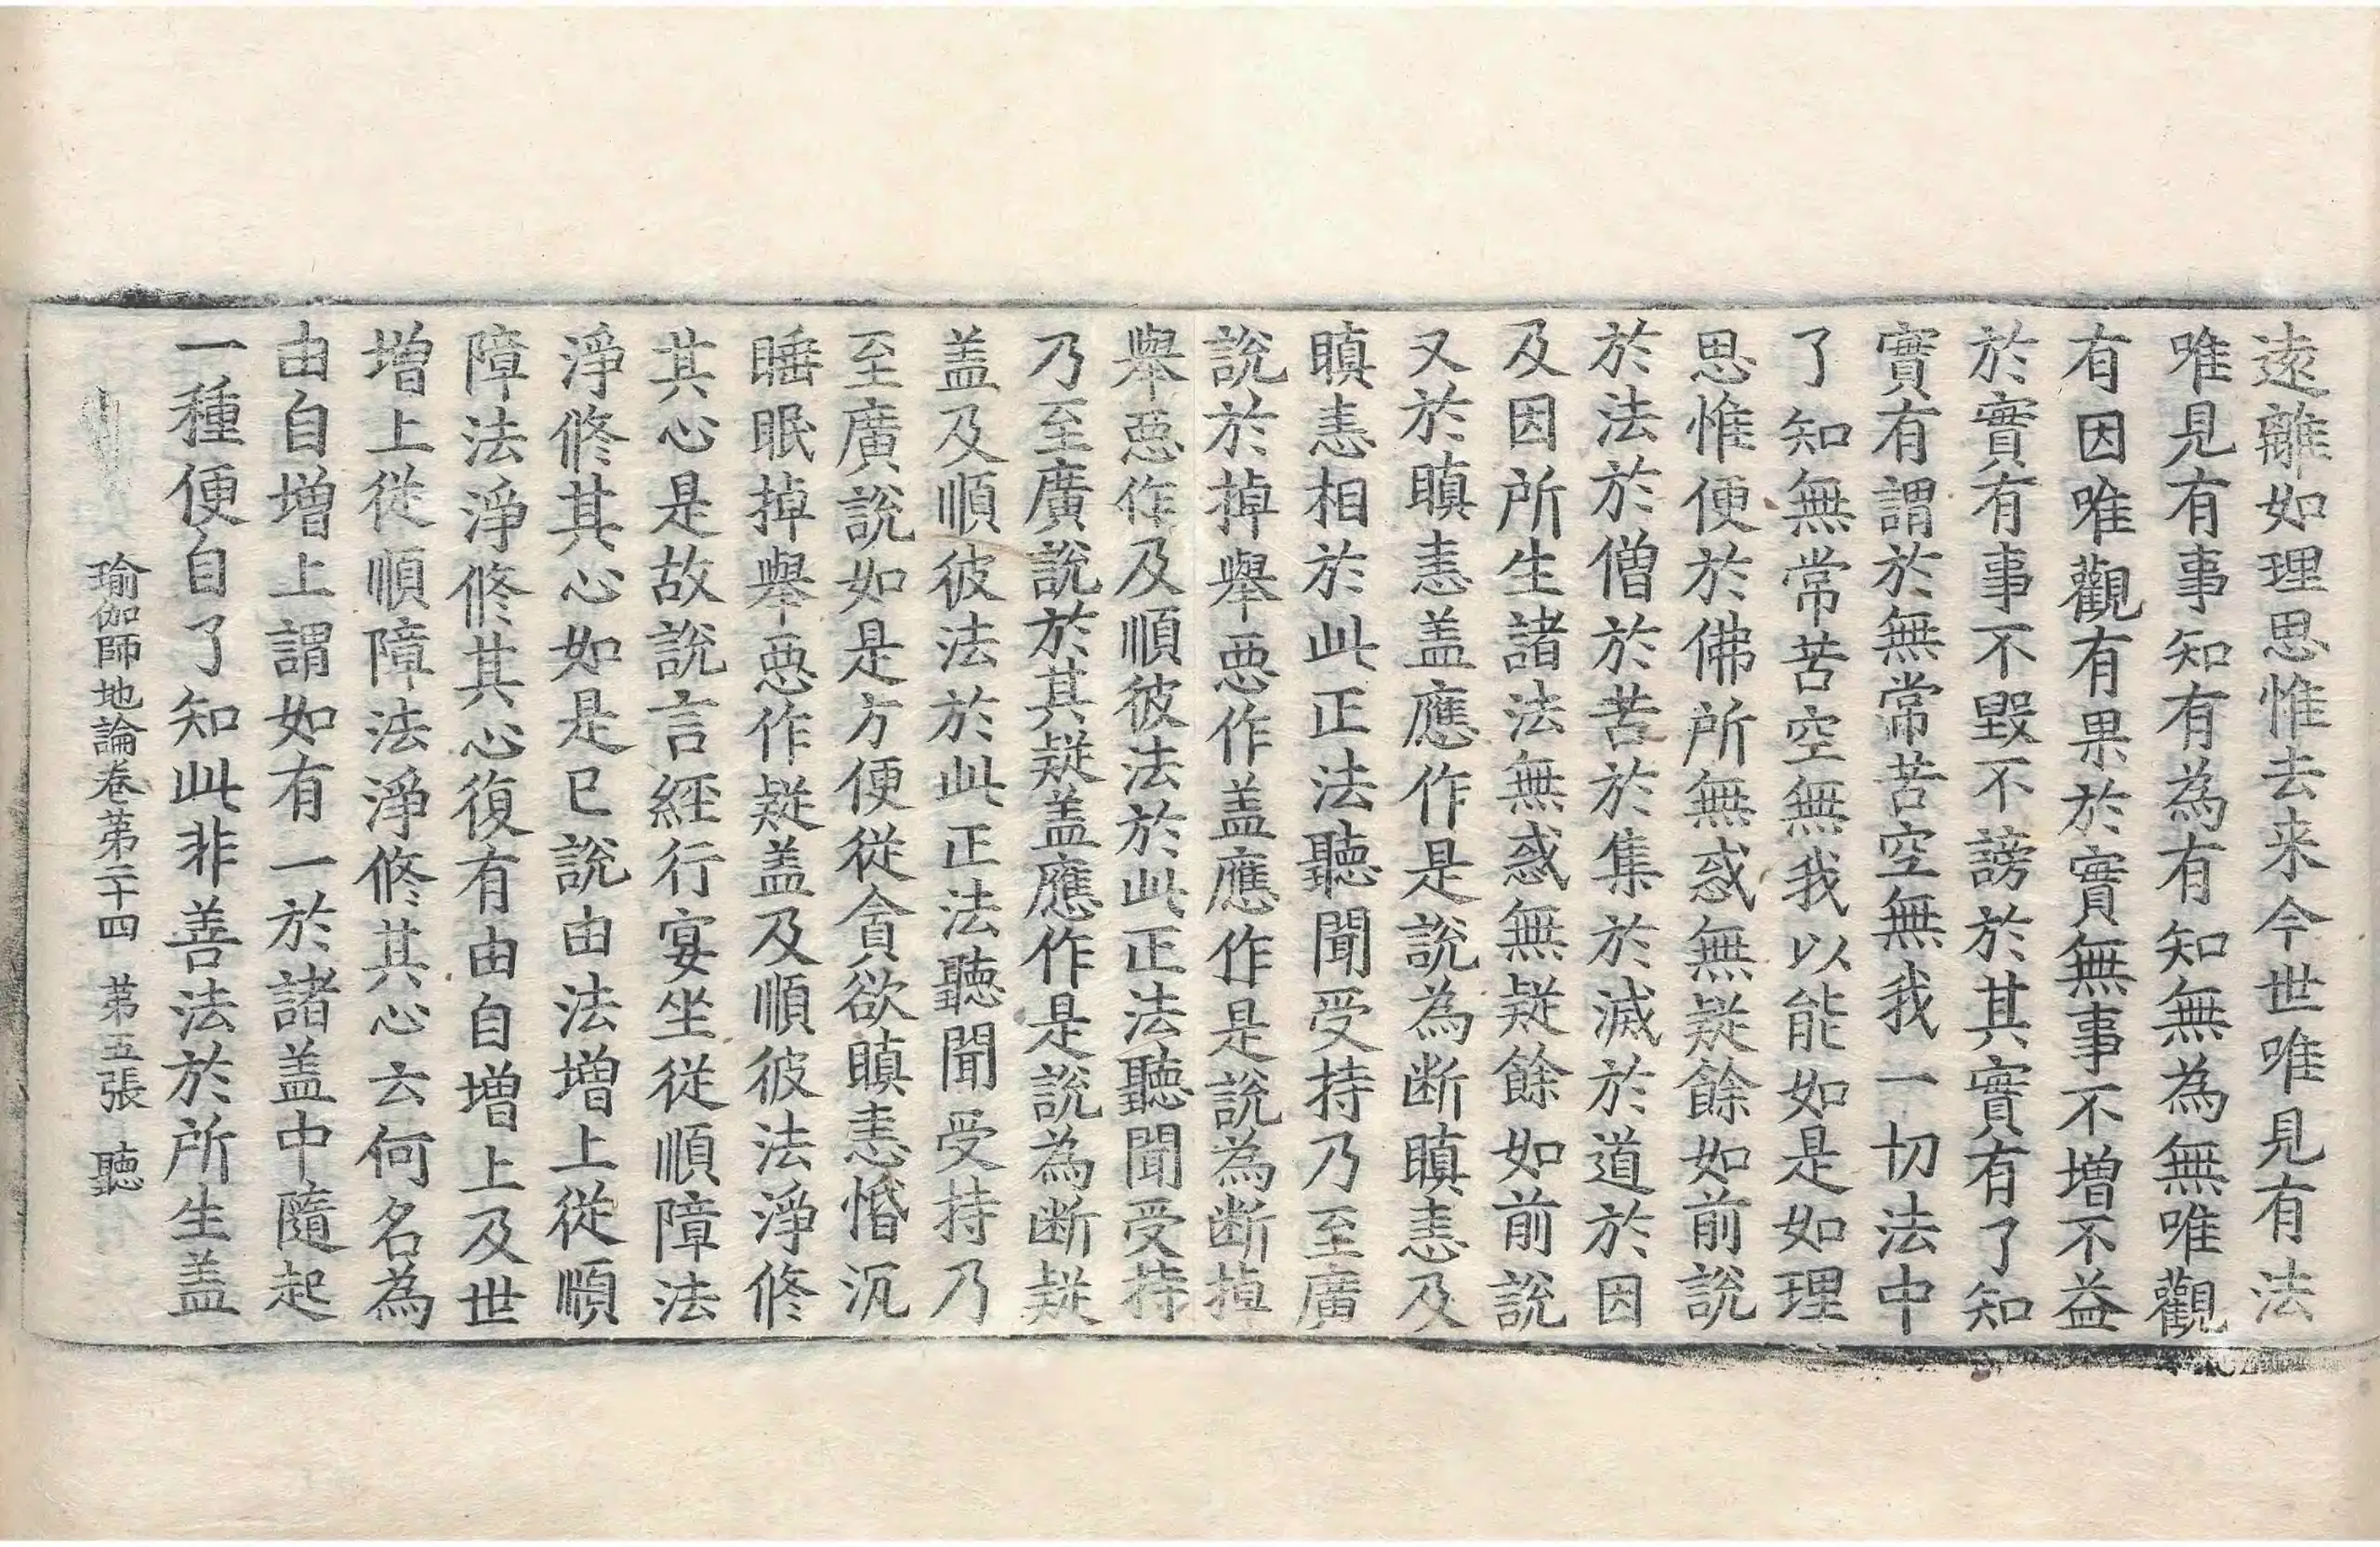 遠離如理思惟去来今世唯見有法
唯見有事知有為有知無為無唯觀
有因唯觀有果於實無事不增不益
於實有事不毀不謗於其實有了知
實有謂於無常苦空無我一切法中
了知無常苦空無我以能如是如理
思惟便於佛所無惑無疑餘如前說
於法於僧於苦於集於滅於道於因
及因所生諸法無惑無疑餘如前說
又於瞋恚盖應作是說為断瞋恚及
瞋恚相於此正法聽聞受持乃至廣
說於掉舉惡作盖應作是說為断掉
舉惡作及順彼法於此正法聽聞受持
乃至廣說於其疑盖應作是說為断疑
盖及順彼法於此正法聽聞受持乃
至廣說如是方便從貪欲瞋恚惛沉
睡眠掉舉惡作疑盖及順彼法淨修
其心是故說言經行宴坐從順障法
淨修其心如是已說由法增上從順
障法淨修其心復有由自增上及世
增上從順障法淨修其心云何名為
由自增上謂如有一於諸盖中隨起
一種便自了知此非善法於所生盖
瑜伽師地論卷第二十四 第五張 聽